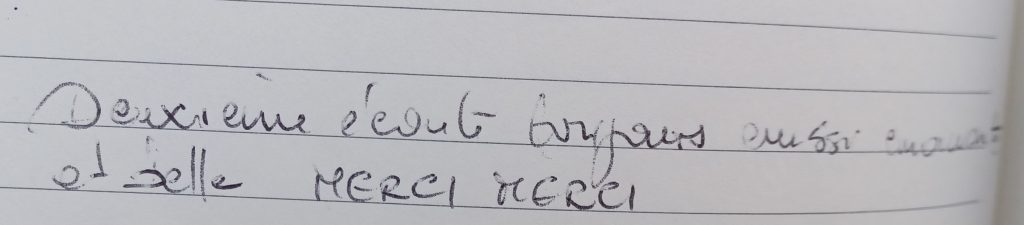 Deuxième écoute toujours aussi émouvante
et belle MERCI MERCI